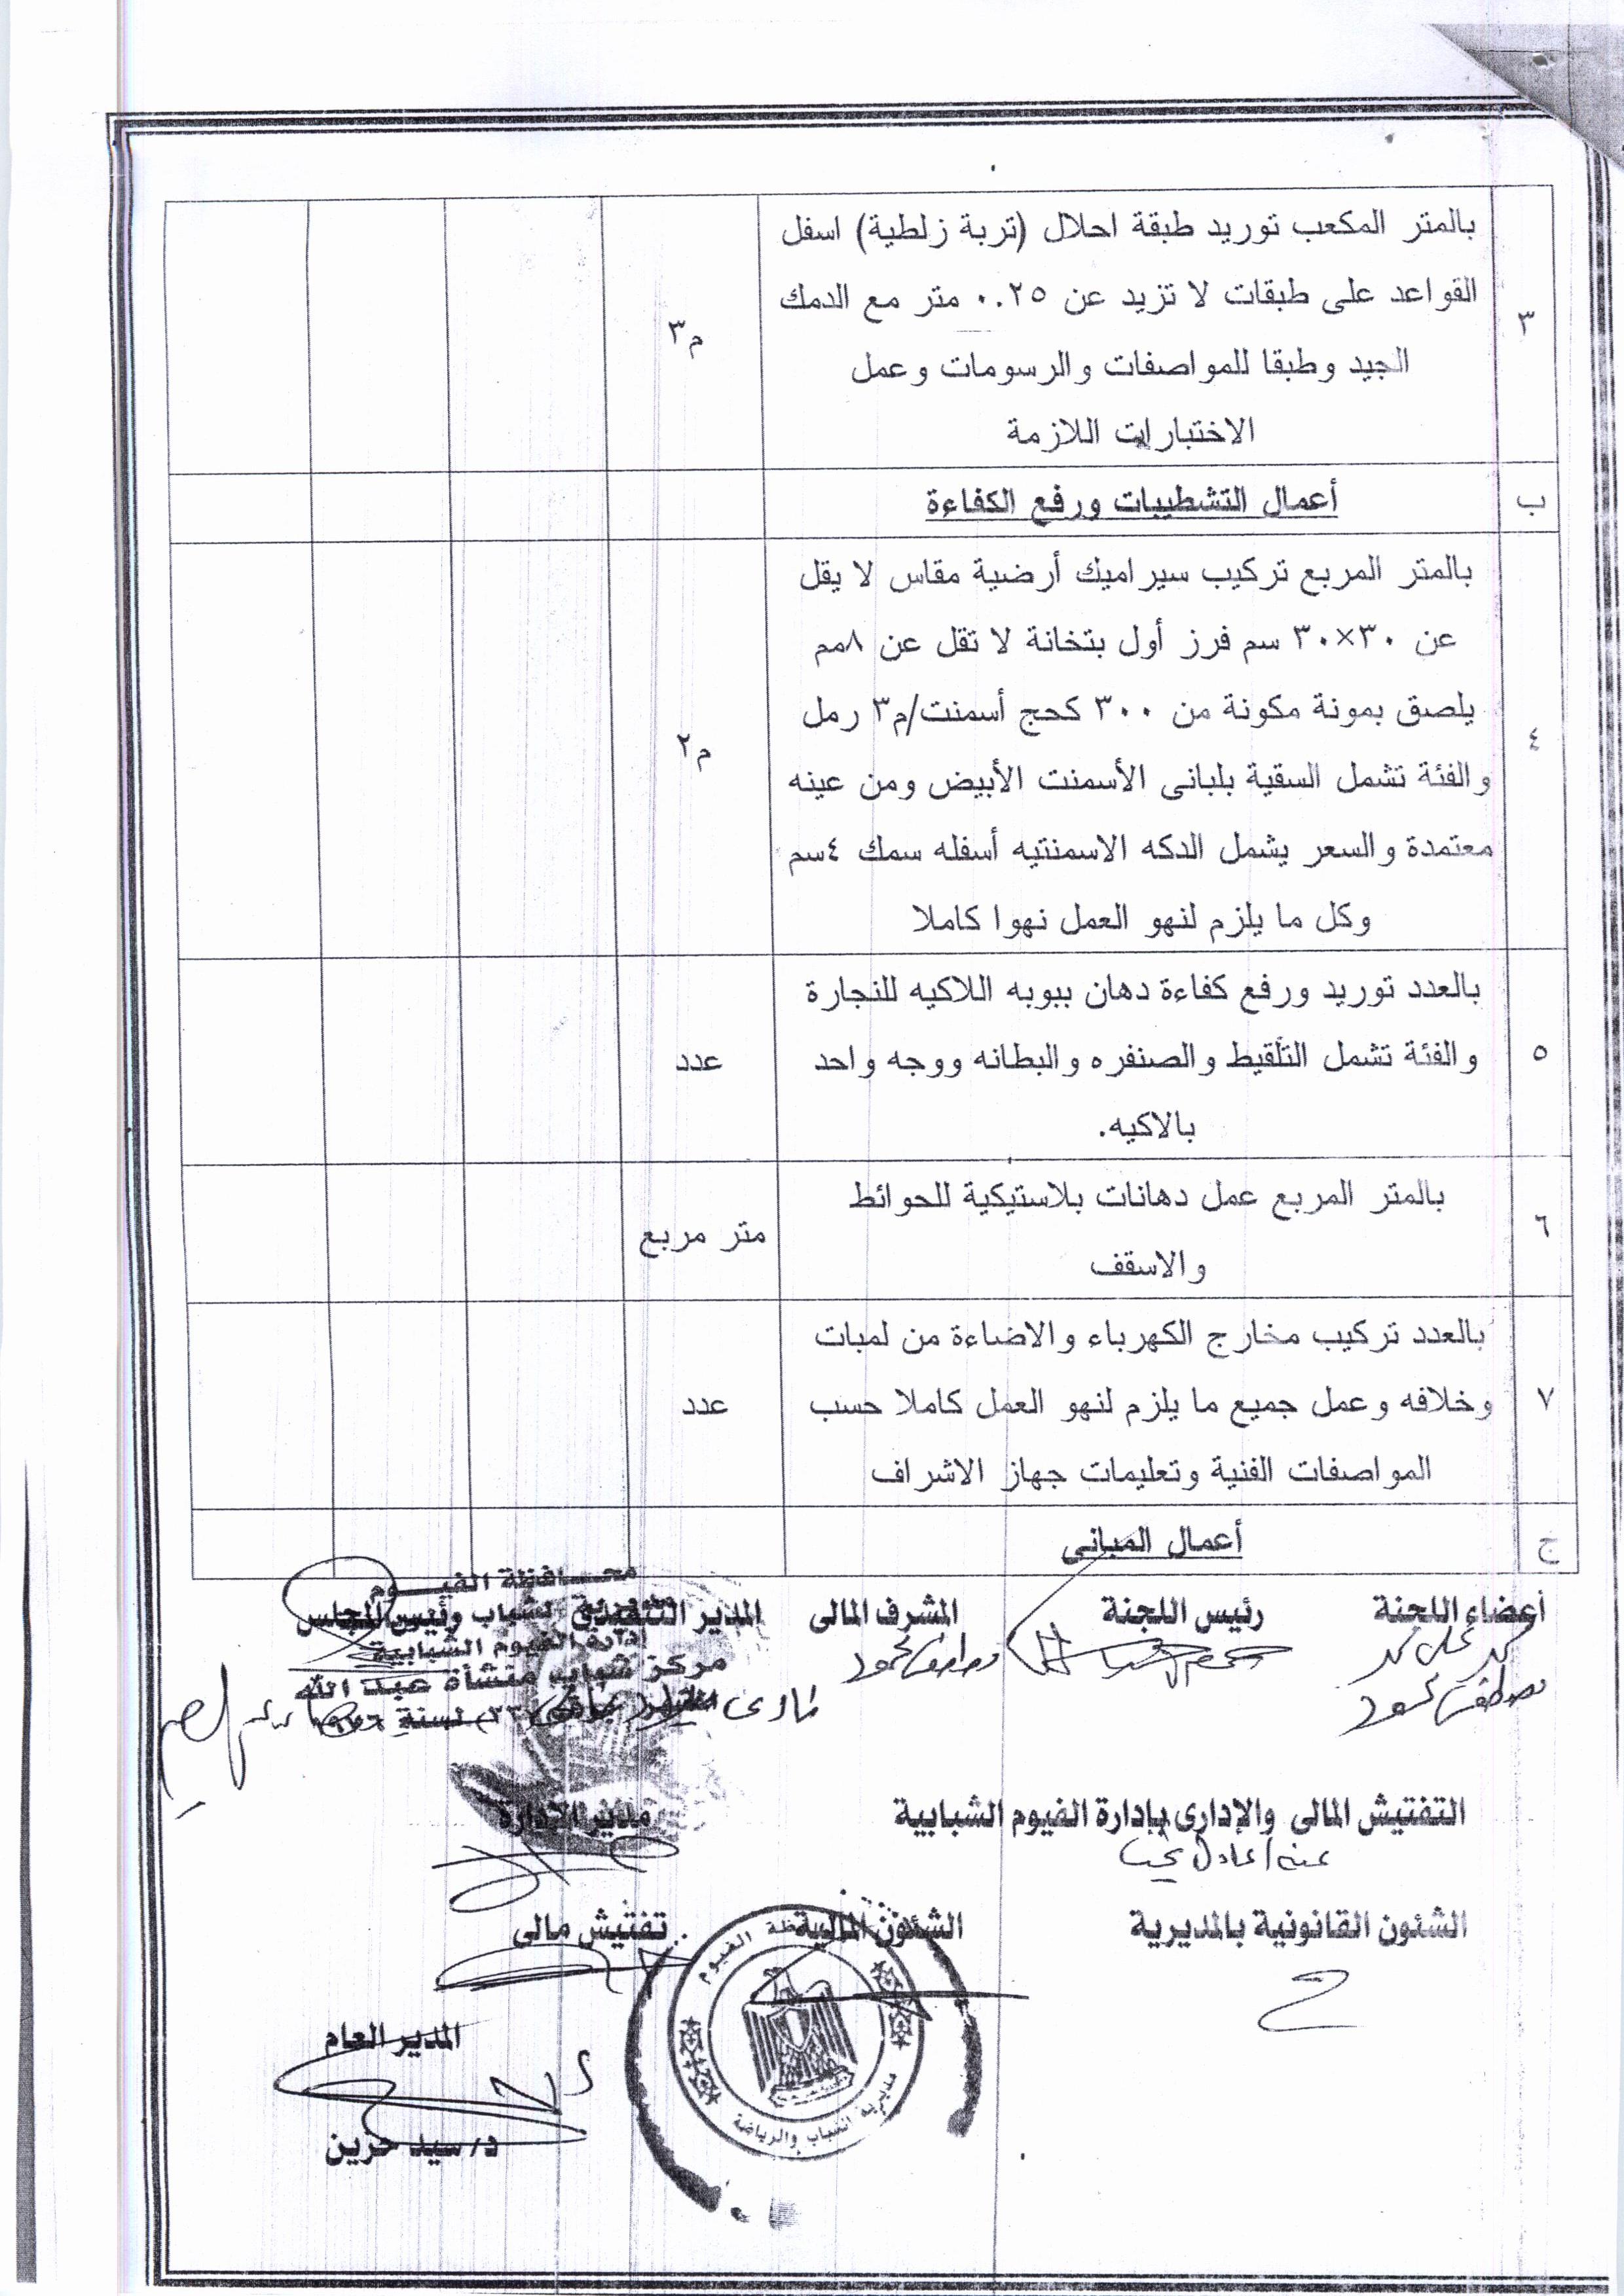 بالمتر المكعب توريد طبقة احلال (تربة زلطية) اسفل
القواعد على طبقات لا تزيد عن ٠.٢٥ متر مع الدمك
٣
م٣
الجيد وطبقا للمواصفات والرسومات وعمل
الاختبارات اللازمة
ب
أعمال التشطيبات ورفع الكفاءة
بالمتر المربع تركيب سيراميك أرضية مقاس لا يقل
عن ٣٠×٣٠ سم فرز أول بتخانة لا تقل عن ٨مم
يلصق بمونة مكونة من ٣٠٠ كحج أسمنت/م٣ رمل
٤
م٢
والفئة تشمل السقية بلبانى الأسمنت الأبيض ومن عينه
معتمدة والسعر يشمل الدكه الاسمنتيه أسفله سمك ٤سم
وكل ما يلزم لنهو العمل نهوا كاملا
بالعدد توريد ورفع كفاءة دهان ببويه اللاكيه للنجارة
٥
والفئة تشمل التلقيط والصنفره والبطانه ووجه واحد
عدد
بالاكيه.
بالمتر المربع عمل دهانات بلاستيكية للحوائط
٦
متر مربع
والاسقف
بالعدد تركيب مخارج الكهرباء والاضاءة من لمبات
٧
وخلافه وعمل جميع ما يلزم لنهو العمل كاملا حسب
عدد
المواصفات الفنية وتعليمات جهاز الاشراف
ج
أعمال المبانى
محافظة الفيوم
أعضاء اللجنة
رئيس اللجنة
المشرف المالى
المدير التنفيذى
ورئيس المجلس
إدارة الفيوم الشبابية
مركز شباب منشأة عبد الله
مصطفى محمود
مصطفى محمود
التفتيش المالى والإدارى بإدارة الفيوم الشبابية
مدير الإدارة
الشئون القانونية بالمديرية
الشئون المالية
تفتيش مالى
الفيوم
مديرية الشباب والرياضة
المدير العام
د/ سيد حزين